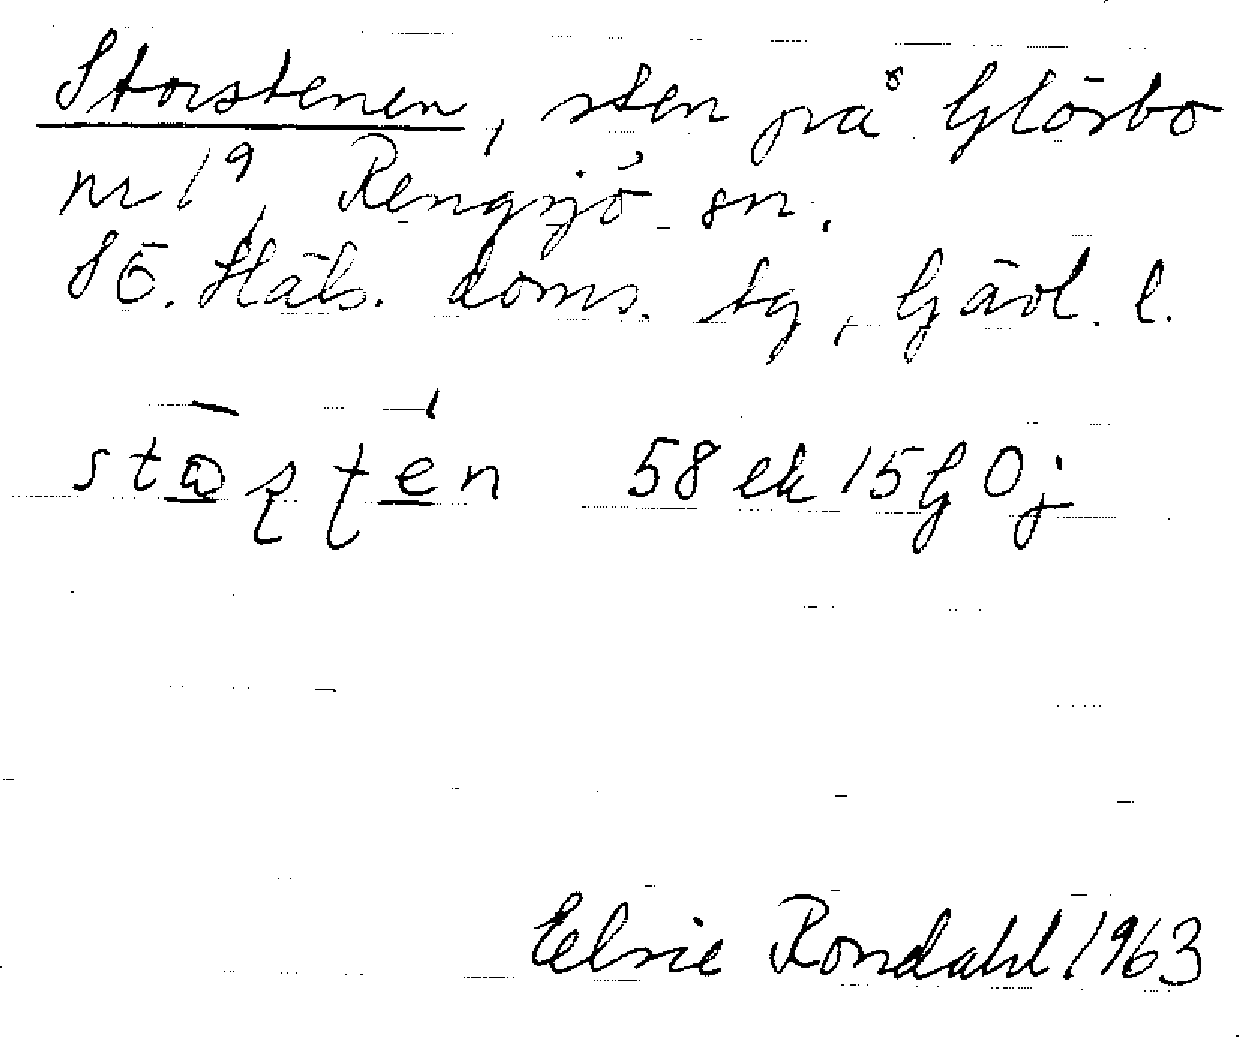 Storstenen, sten på Glösbo
nr 1⁹, Rengsjö sn.
SÖ. Häls. doms. tg, Gävl. l.
58 ek 15 g 0 j
Elsie Rondahl 1963